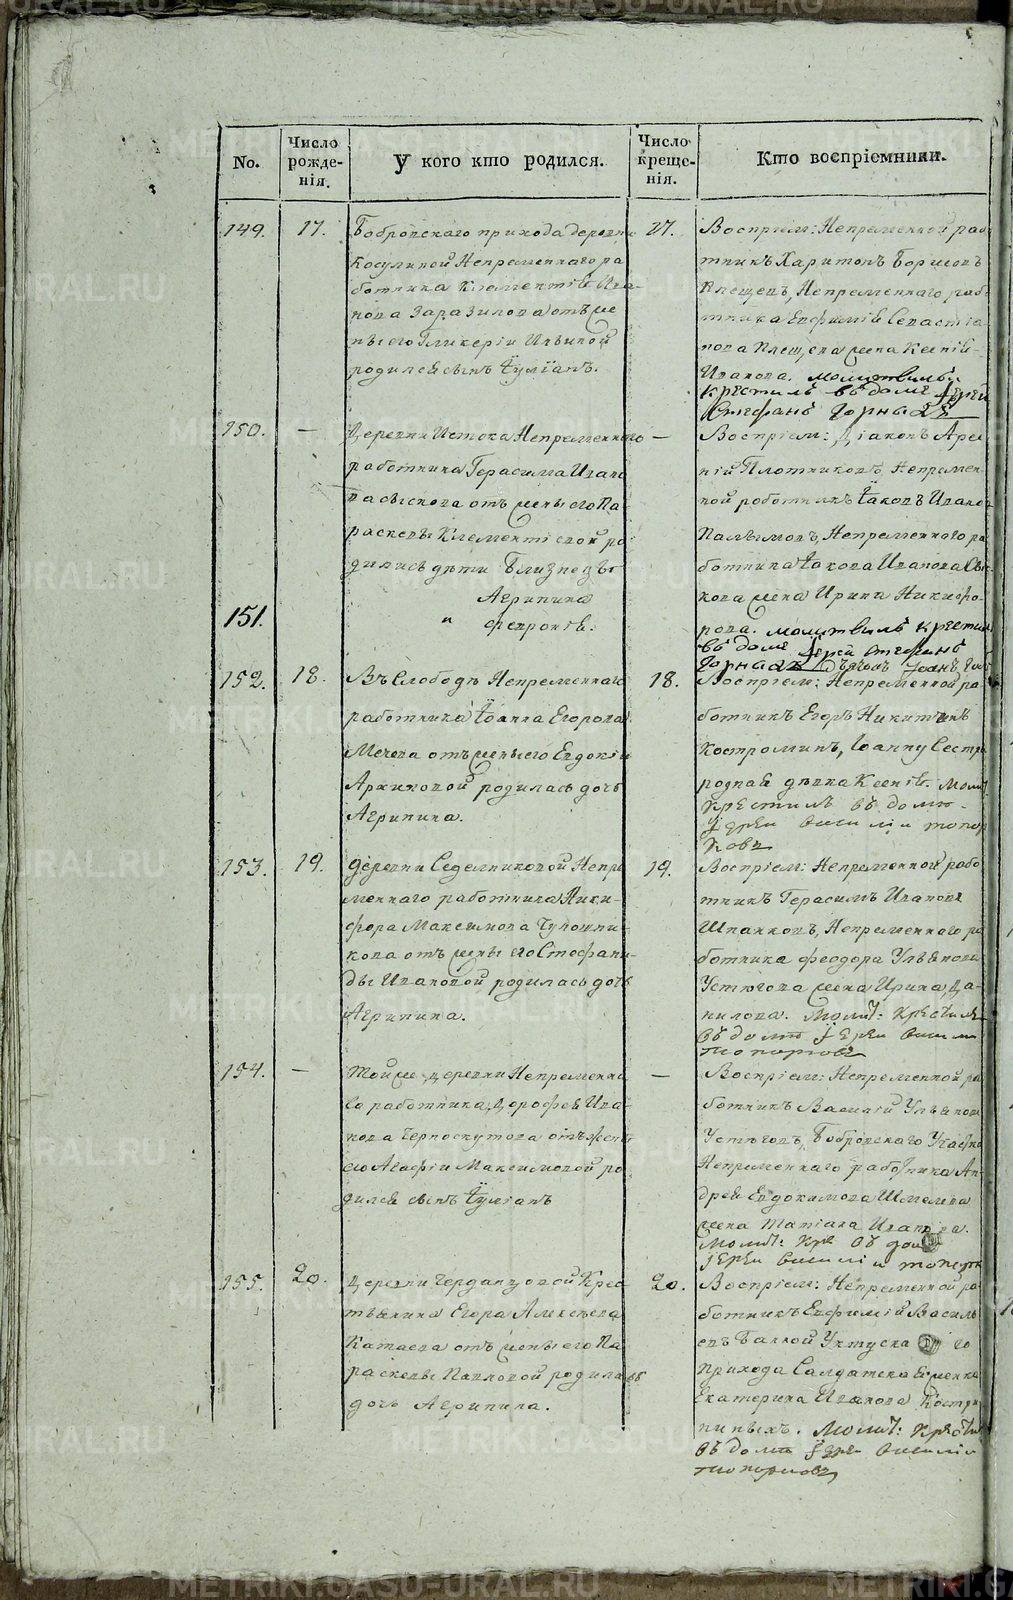 No.
Число рожде-нія.
У кого кто родился.
Число креще-нія.
Кто воспріемники.
149. 17.
Бобровскаго прихода деревни
Косулиной Непременнаго ра
ботника Клементія Ива-
нова Заразилова отъ же
ны его Гликеріи Ильиной
родился сынъ Іуліанъ.
27.
Воспріем: Непременной раб
тникъ Харитонъ Борисовъ
Клещевъ, Непременнаго раб
тника Евфимія Севастіа-
нова Клещева жена Ксенія
Иванова. молитвилъ
крестилъ въ доме Іерей
Стефанъ Горныхъ
150. —
Деревни Истока Непременнаго
работника Герасима Ивано
ва отъ жены его Па-
раскевы Клементіевой ро
дились дети близнецы
Агрипина
151.
" Феврониія.
—
Воспріем: Діаконъ Арсе
ній Плотниковъ, Непремен-
ной работникъ Іаковъ Иванов
Непременнаго ра
ботника Іакова Иванова
кова жена Ирина Никифо-
рова. молитвилъ крестилъ
въ доме Іерей Стефанъ
Горныхъ
152. 18.
Въ Слободѣ Непременнаго
работника Іоанна Егорова
Мечева отъ жены его Евдокіи
Архиповой родилась дочь
Агрипина.
18.
Воспріем: Непременной ра
ботникъ Егоръ Никитинъ
Костроминъ, Іоанну Сестра
родная девка Ксенія. Молит
крестилъ въ доме
Іерей Василій Топор
ковъ
153. 19.
Деревни Седелниковой Непре
меннаго работника Ники-
фора Максимова
кова отъ жены его Стефани
ды Ивановой родилась дочь
Агрипина.
19.
Воспріем: Непременной рабо
тникъ Герасимъ Иванов
Шпанковъ, Непременнаго ра
ботника Феодора Ульянова
Устюгова жена Ирина Да-
нилова. Молит: крестилъ
въ доме Іерей Василій
Топорковъ
154. —
Той же деревни Непременна
го работника Дорофея Ива-
нова Черноскутова отъ жены
его Агафіи Максимовой ро
дился сынъ Іуліанъ
—
Воспріем: Непременной ра
ботникъ Василій Ульянов
Устюговъ, Бобровскаго
Непременнаго работника Ан-
дрея Евдокимова Шмелева
жена Татіана Иванова.
Молит: кре въ дом
Іерей Василій Топорк
155. 20.
Деревни Черданцовой Крес
тьянина Егора Алексеева
Катаева отъ жены его Па
раскевы Павловой родилась
дочь Агрипина.
20.
Воспріем: Непременной ра
ботникъ Евфимій Василь
евъ Уктуска го
прихода Салдатска женка
Екатерина Иванова
Молит: крести
въ доме Іерей Василій
Топорковъ
METRIKI.GASU-URAL.RU